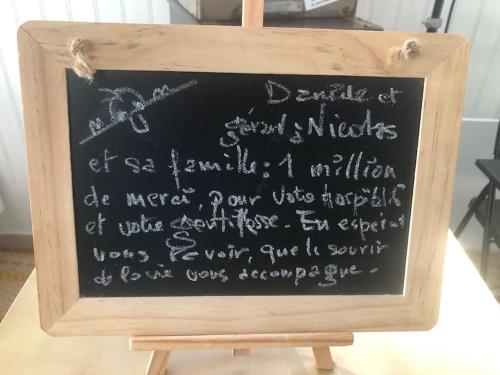 Danièle et
gérard à Nicolas
et sa famille : 1 million
de merci, pour votre
et votre gentillesse. En espérant
vous revoir, que le sourire
de la vie vous accompagne.